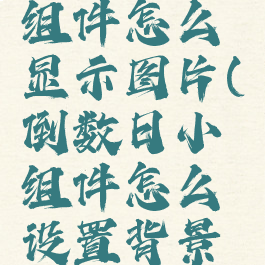 组件怎么
显示图片(
倒数日小
组件怎么
设置背景